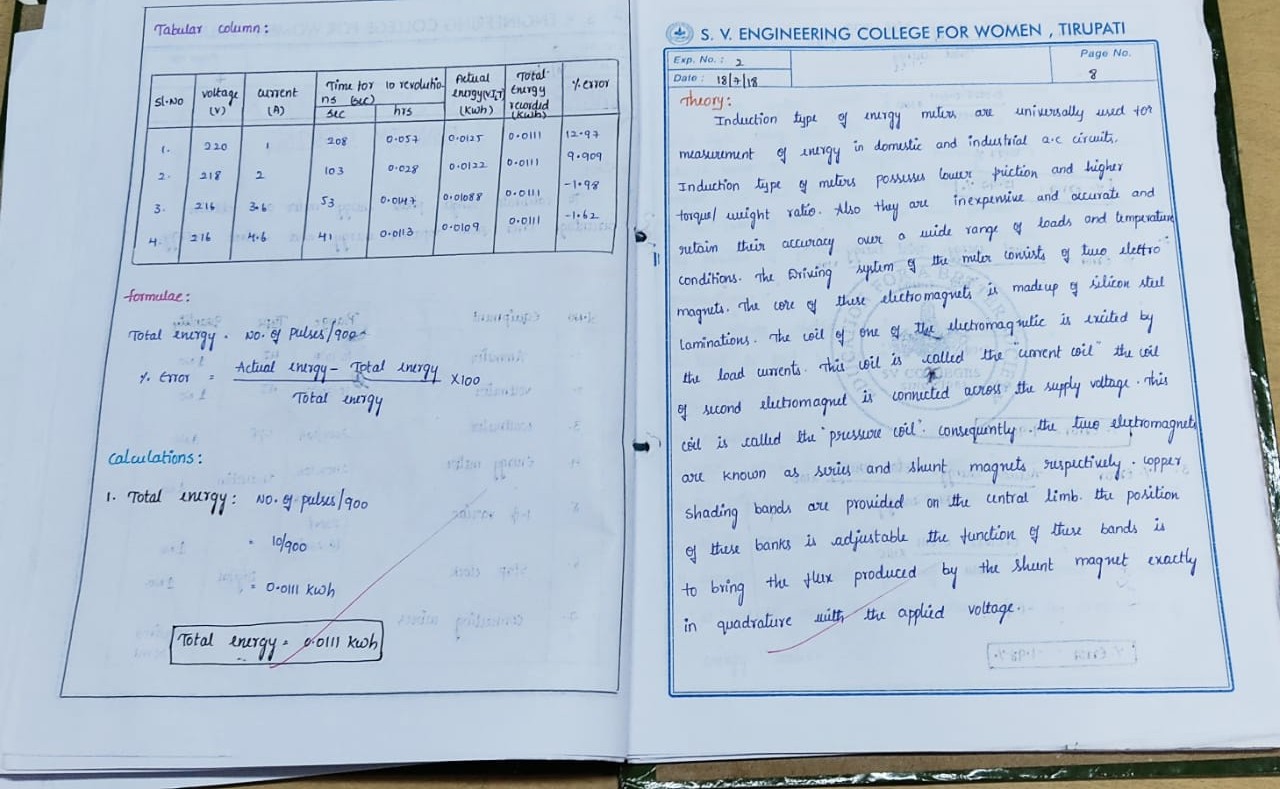 Tabular column:
Sl.No voltage (V) current (A) Time for 10 revolutions (sec) sec hrs Actual energy(VIT) (kWh) Total energy recorded (kWh) % error
1. 220 1 208 0.057 0.0125 0.0111 12.97
2. 218 2 103 0.028 0.0122 0.0111 9.909
3. 216 3.6 53 0.0147 0.01088 0.0111 -1.98
4. 216 4.6 41 0.0113 0.0109 0.0111 -1.62
formulae:
Total energy = No. of pulses/900
% Error = Actual energy - Total energy / Total energy X100
Calculations:
1. Total energy: No. of pulses/900
= 10/900
= 0.0111 kwh
Total energy = 0.0111 kwh
S. V. ENGINEERING COLLEGE FOR WOMEN , TIRUPATI
Exp. No. : 2
Page No.
Date : 18/7/18
8
Theory:
Induction type of energy meters are universally used for
measurement of energy in domestic and industrial a.c circuits.
Induction type of meters possesses lower friction and higher
torque/ weight ratio. Also they are inexpensive and accurate and
retain their accuracy over a wide range of loads and temperature
conditions. The Driving system of the meter consists of two elettro
magnets. The core of these electromagnets is madeup of silicon steel
laminations. The coil of one of the electromagnetic is excited by
the load currents. This coil is called the "current coil" the coil
of second electromagnet is connected across the supply voltage. This
coil is called the "pressure coil". consequently. the two electromagnets
are known as series and shunt magnets respectively. copper
shading bands are provided on the central limb. the position
of these banks is adjustable the function of these bands is
to bring the flux produced by the shunt magnet exactly
in quadrature with the applied voltage.